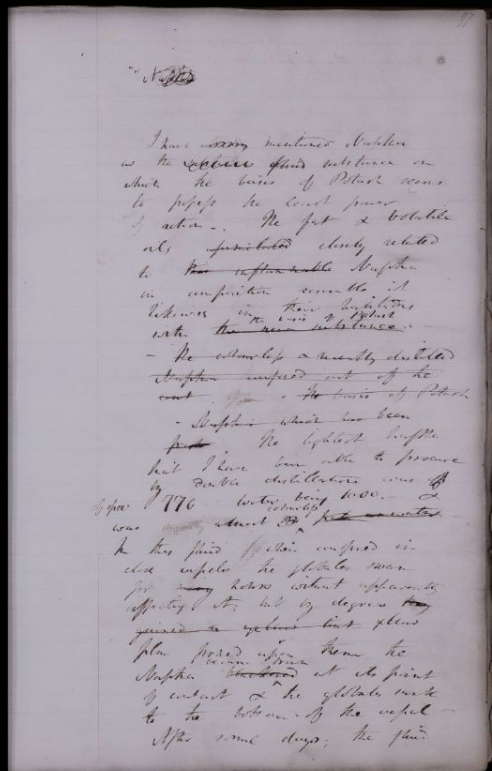 97
Naptha
I have mentioned Naptha
as the fluid substance on
which the basis of Potash seems
to possess the least power
of action -. The fat & volatile
oils closely related
to the inflammable Naptha
in composition resemble it
likewise in their habitudes
with the basis of Potash
the new substance.
- The colourless & recently distilled
Naptha out of the
The basis of Potash
- Naptha which has been
The lightest naptha
that I have been able to procure
by double distillation was of
770 water being 1000. &
was almost colourless
In this fluid when confined in
close vessels the globules swam
for many hours without apparently
affecting it; but by degrees they
gained a
film formed upon them the
Naptha became brown at its point
of contact & the globules sunk
to the bottom of the vessel -
After some days; the fluid